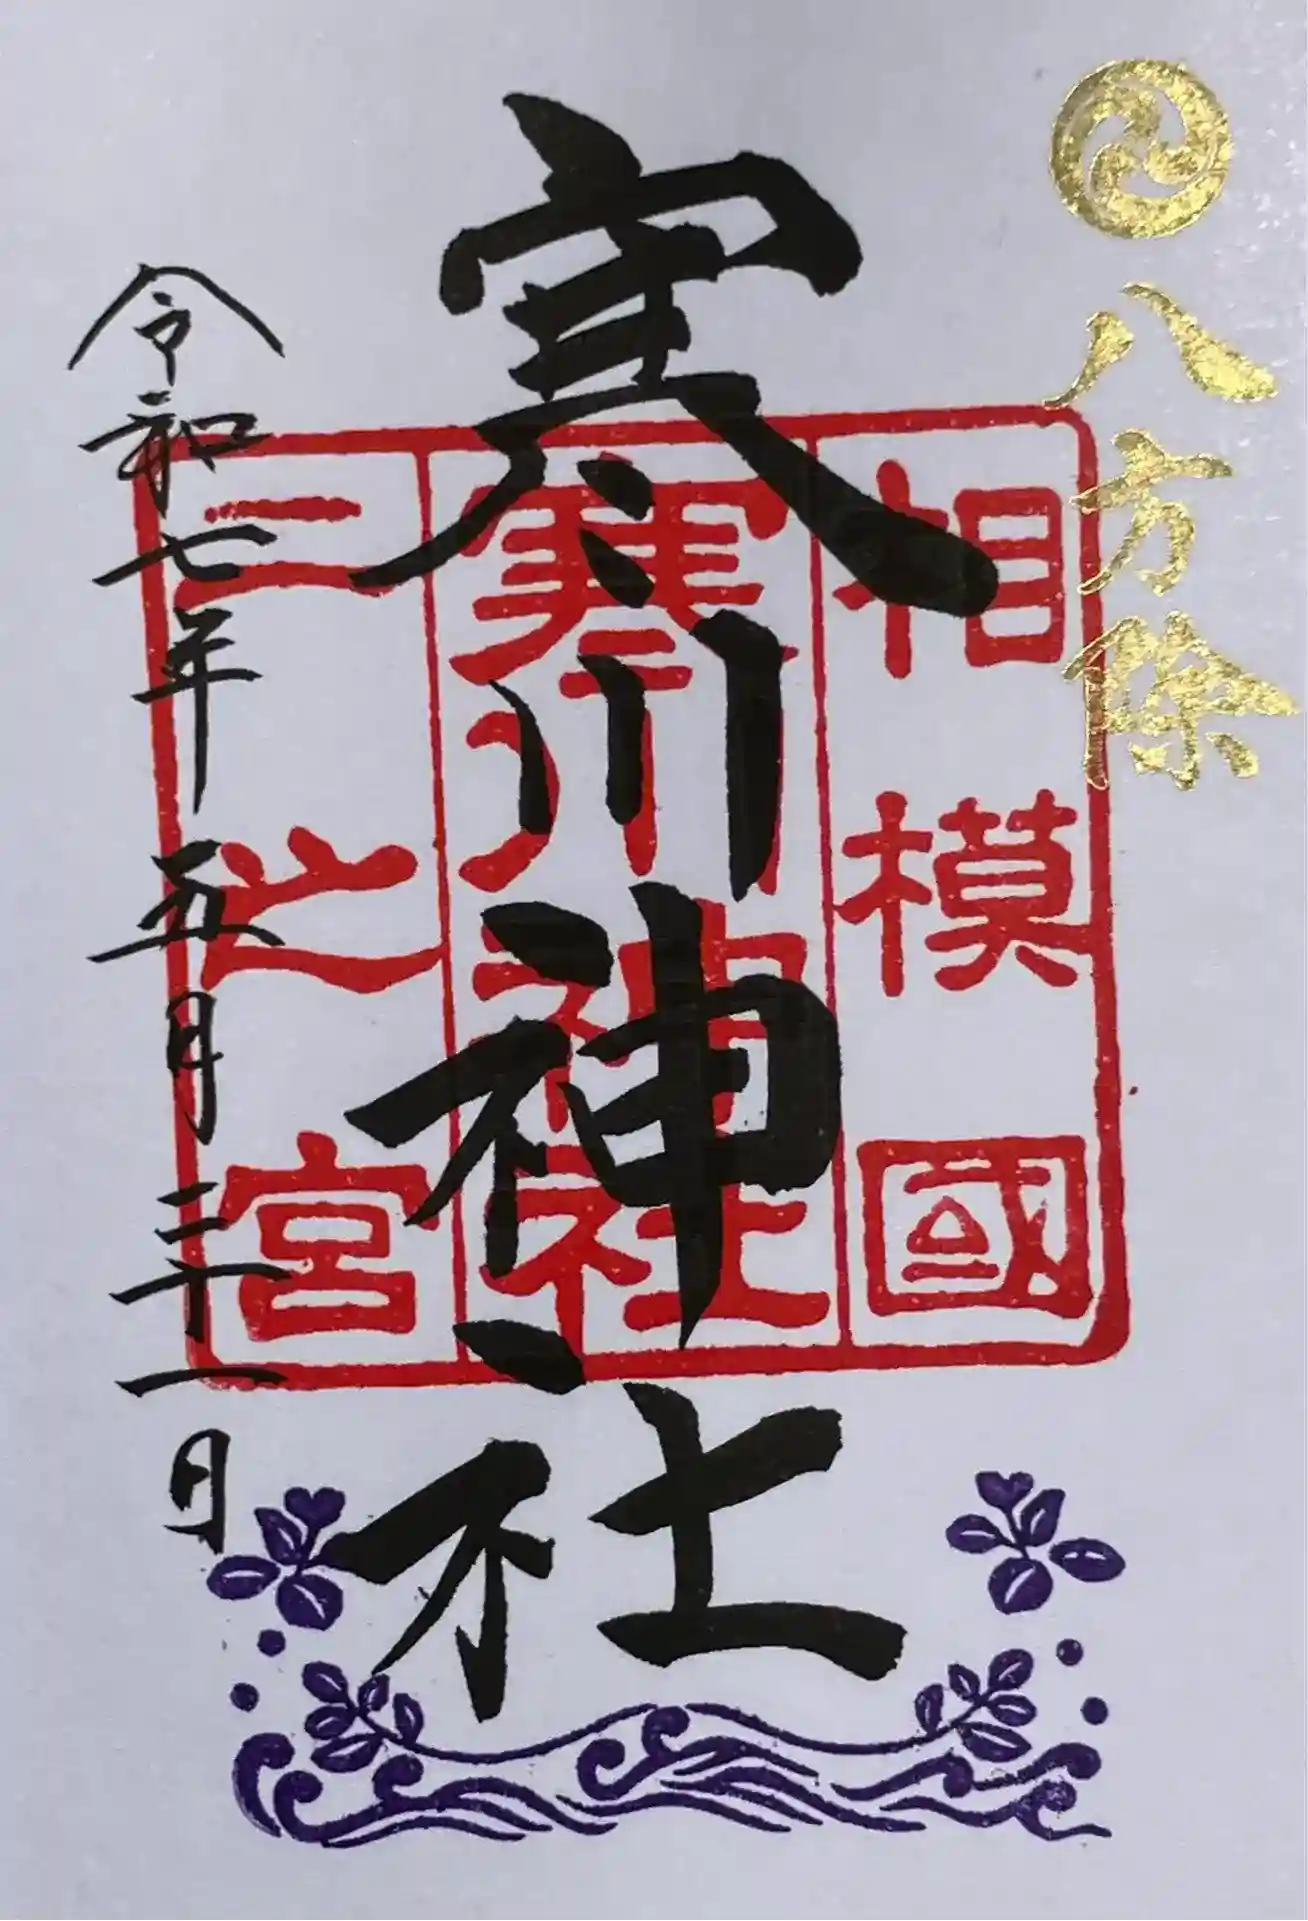 八方除
相模國
寒川神社
二之宮
寒川神社
令和七年五月二十一日